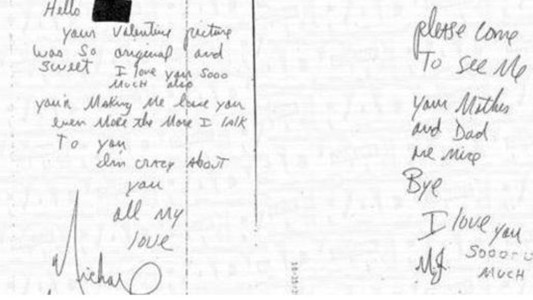 Hello
your Valentine picture
was so original and
sweet I love you Sooo
MUCH also
you'r Making Me love you
even More the More I talk
To you
Im CRAZY About
you
all my
love
Michael
please come
To see Me
your Mother
and Dad
are nice
Bye
I love you
Soooo
MJ MUCH